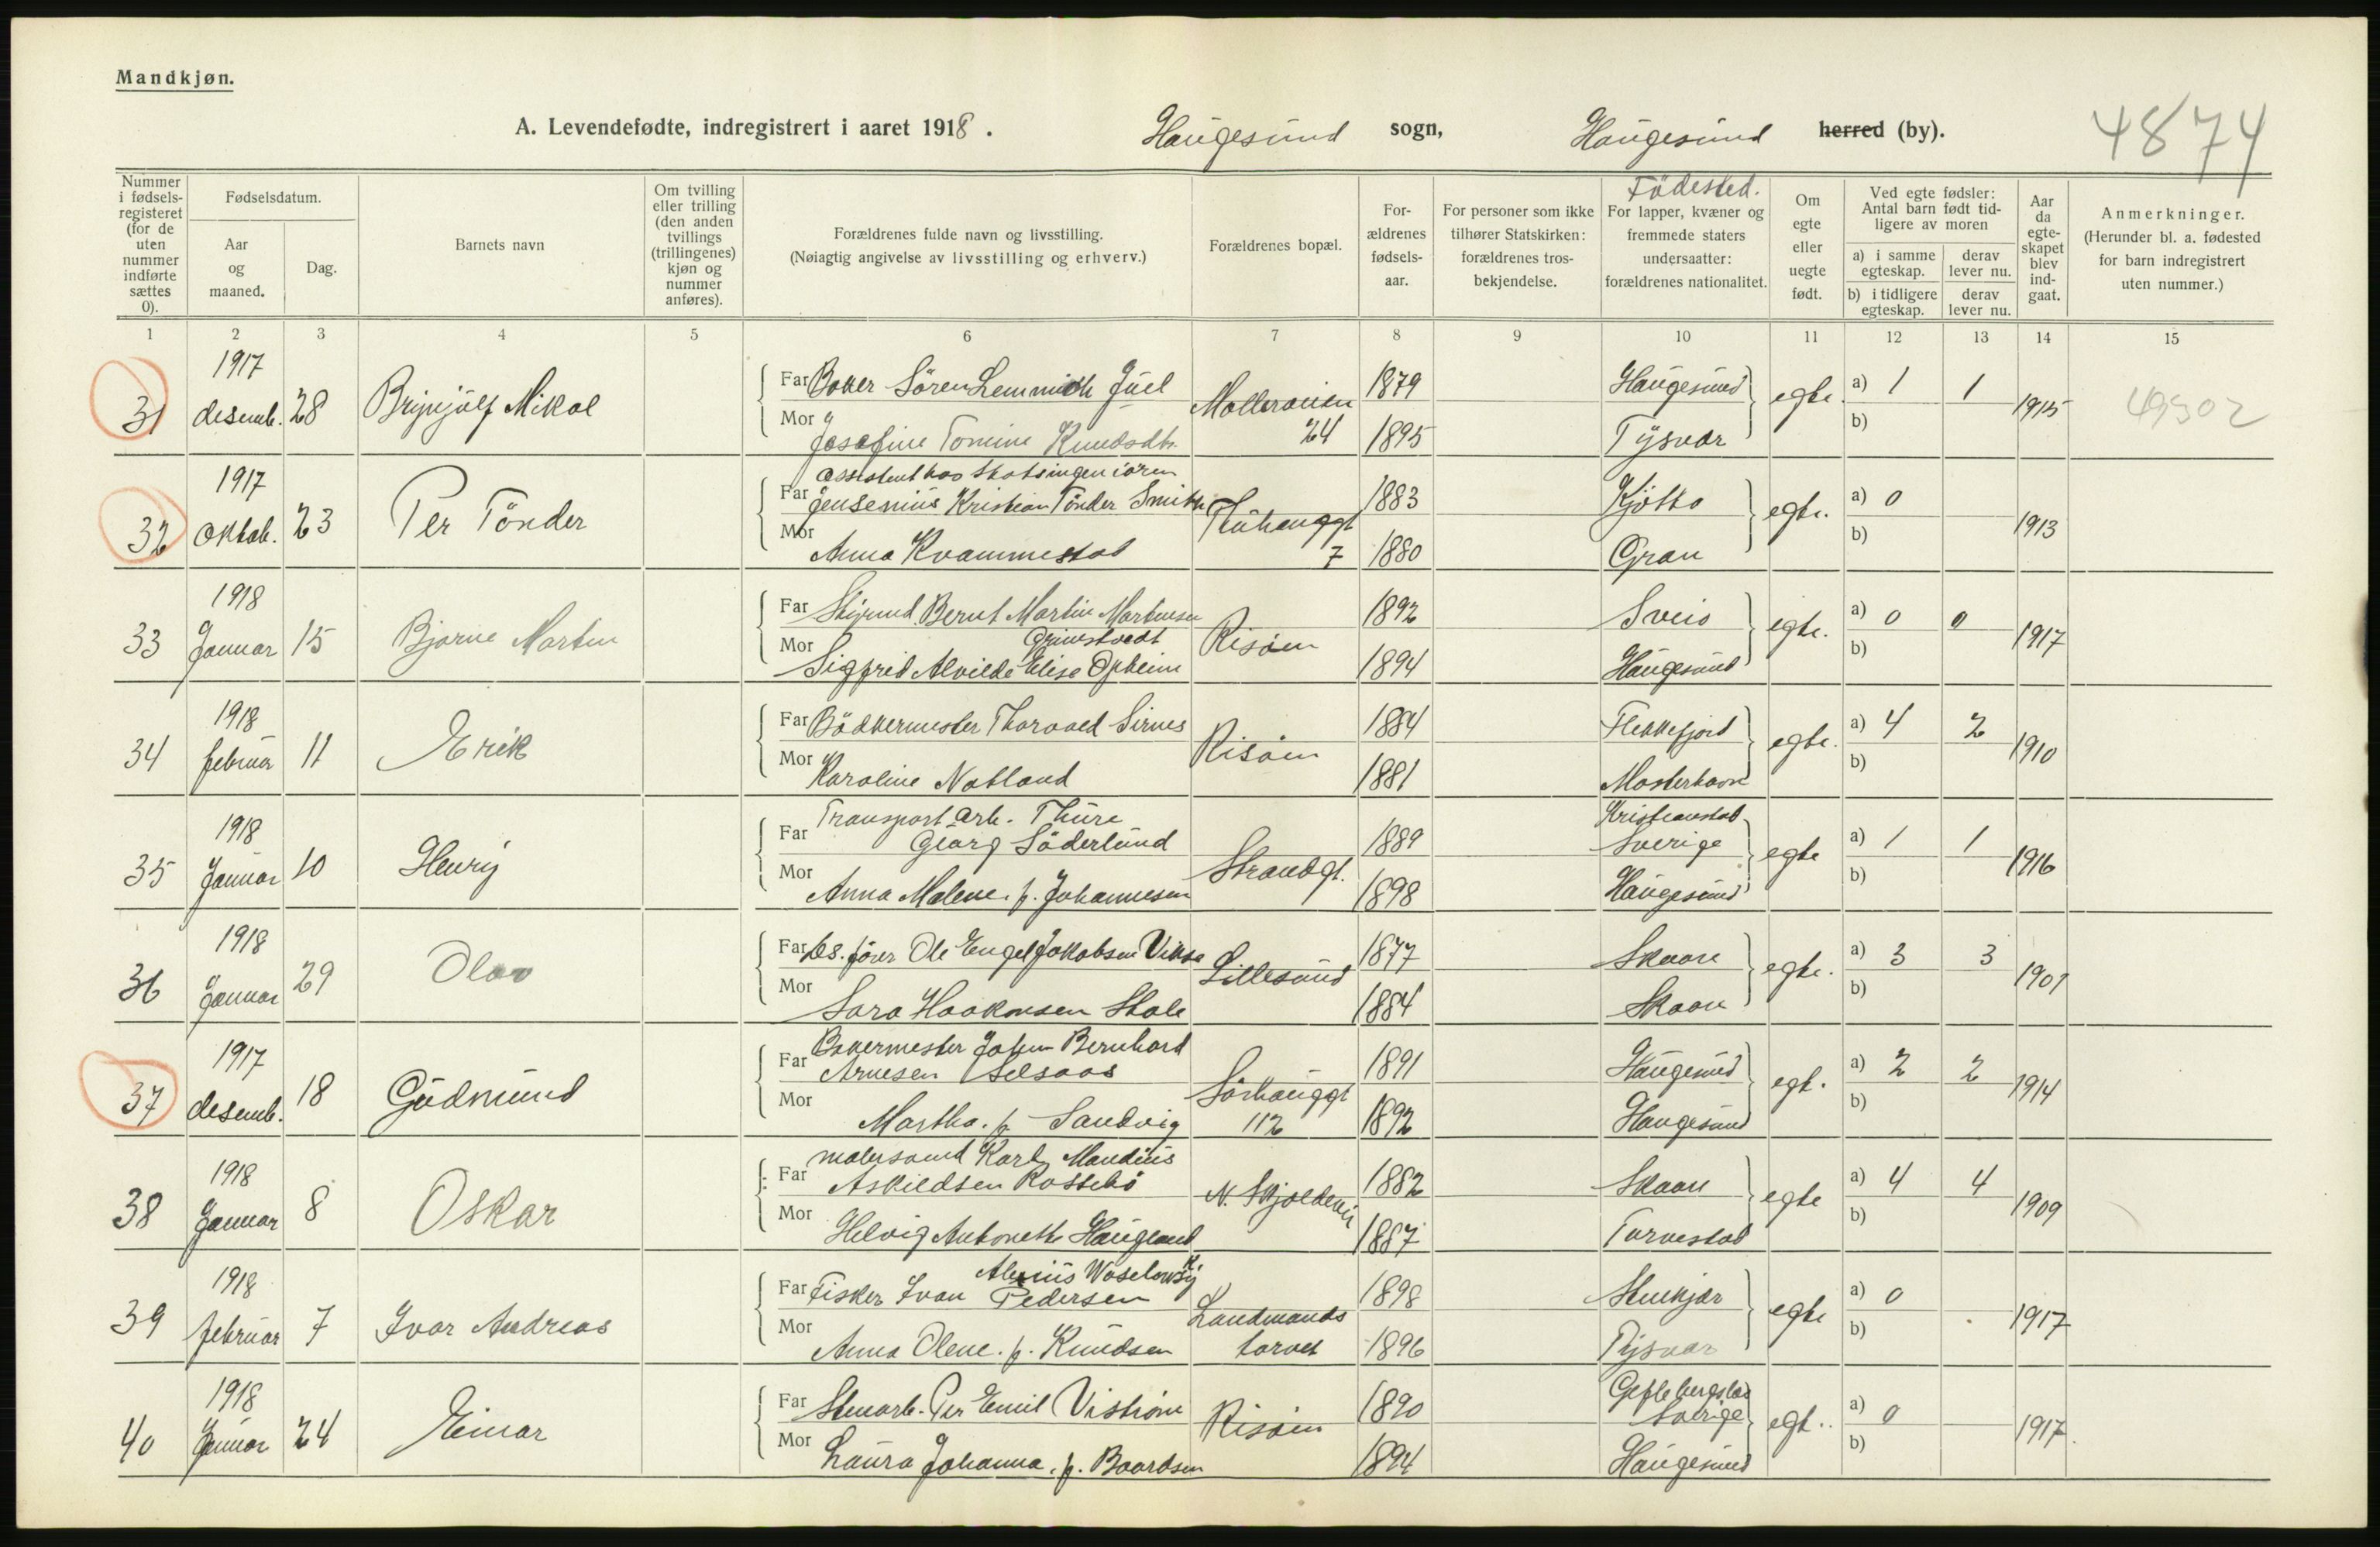 Mandkjøn.
A. Levendefødte, indregistrert i aaret 1918. Haugesund sogn, Haugesund herred (by). 4874
Nummer i fødselsregisteret (for de uten nummer indførte sættes 0).
Fødselsdatum.
Aar og maaned.
Dag.
Barnets navn
Om tvilling eller trilling (den anden tvillings (trillingenes) kjøn og nummer anføres).
Forældrenes fulde navn og livsstilling.
(Nøiagtig angivelse av livsstilling og erhverv.)
Forældrenes bopæl.
Forældrenes fødselsaar.
For personer som ikke tilhører Statskirken: forældrenes trosbekjendelse.
Födested.
For lapper, kvæner og fremmede staters undersaatter: forældrenes nationalitet.
Om egte eller uegte født.
Ved egte fødsler: Antal barn født tidligere av moren
a) i samme egteskap.
derav lever nu.
b) i tidligere egteskap.
derav lever nu.
Aar da egteskapet blev indgaat.
Anmerkninger.
(Herunder bl. a. fødested for barn indregistrert uten nummer.)
1 2 3 4 5 6 7 8 9 10 11 12 13 14 15
31 1917 desemb. 28 Brynjulf Mikal
Far Baker Sören Lemmich Juel 1879 Haugesund egte. a) 1 1 1915 49302
Mor Josefine Tomine Knudsdtr. 24 1895 Tysvær b)
32 1917 Oktob. 23 Per Tönder
assistent hos Statsingeniören
Far Jensenius Kristian Tönder Smith 1883 egte. a) 0 1913
Mor Anna Kvammestad 7 1880 Gran b)
33 1918 Januar 15 Bjarne Martin
Far Styrmd. Bernt Martin Martinsen Grinstvedt Risöen 1892 Sveio egte. a) 0 0 1917
Mor Sigfrid Alvilde Elise Opheim 1894 Haugesund b)
34 1918 februar 11 Erik
Far Bödkermester Thorvald Sirnes Risöen 1884 Flekkefjord egte. a) 4 2 1910
Mor Karoline Natland 1881 Mosterhavn b)
35 1918 Januar 10 Henry
Transport arb. Thure
Far Georg Söderlund Strandgt. 1889 Kristianstad Sverige egte a) 1 1 1916
Mor Anna Malene. f. Johannesen 1898 Haugesund b)
36 1918 Januar 29 Olav
Far Ds. förer Ole Engel Jakobsen Vikse Lillesund 1877 Skaare egte. a) 3 3 1907
Mor Sara Haakonsen Stole 1884 Skaare b)
37 1917 desemb. 18 Gudmund
Bakermester Johan Bernhard
Far Arnesen Selsaas Sörhauggt 1891 Haugesund egt. a) 2 2 1914
Mor Martha. f. Sandvig 112 1892 Haugesund b)
38 1918 Januar 8 Oskar
malersvend Karl Mandius
Far Askildsen Rossebö N. Skjoldevei 1882 Skaare egte a) 4 4 1909
Mor Helvig Antonette Haugland 1887 Torvestad b)
39 1918 februar 7 Ivar Andreas
Alexius Waselowsky
Far Fisker Ivan Pedersen Landmands 1898 Stenkjær egte a) 0 1917
Mor Anna Olene. f. Knudsen torvet 1896 Tysvær b)
40 1918 Januar 24 Einar
Far Stenarb. Per Emil Viström Risöen 1890 Sverige egt. a) 0 1917.
Mor Laura Johanna. f. Baardsen 1894 Haugesund b)